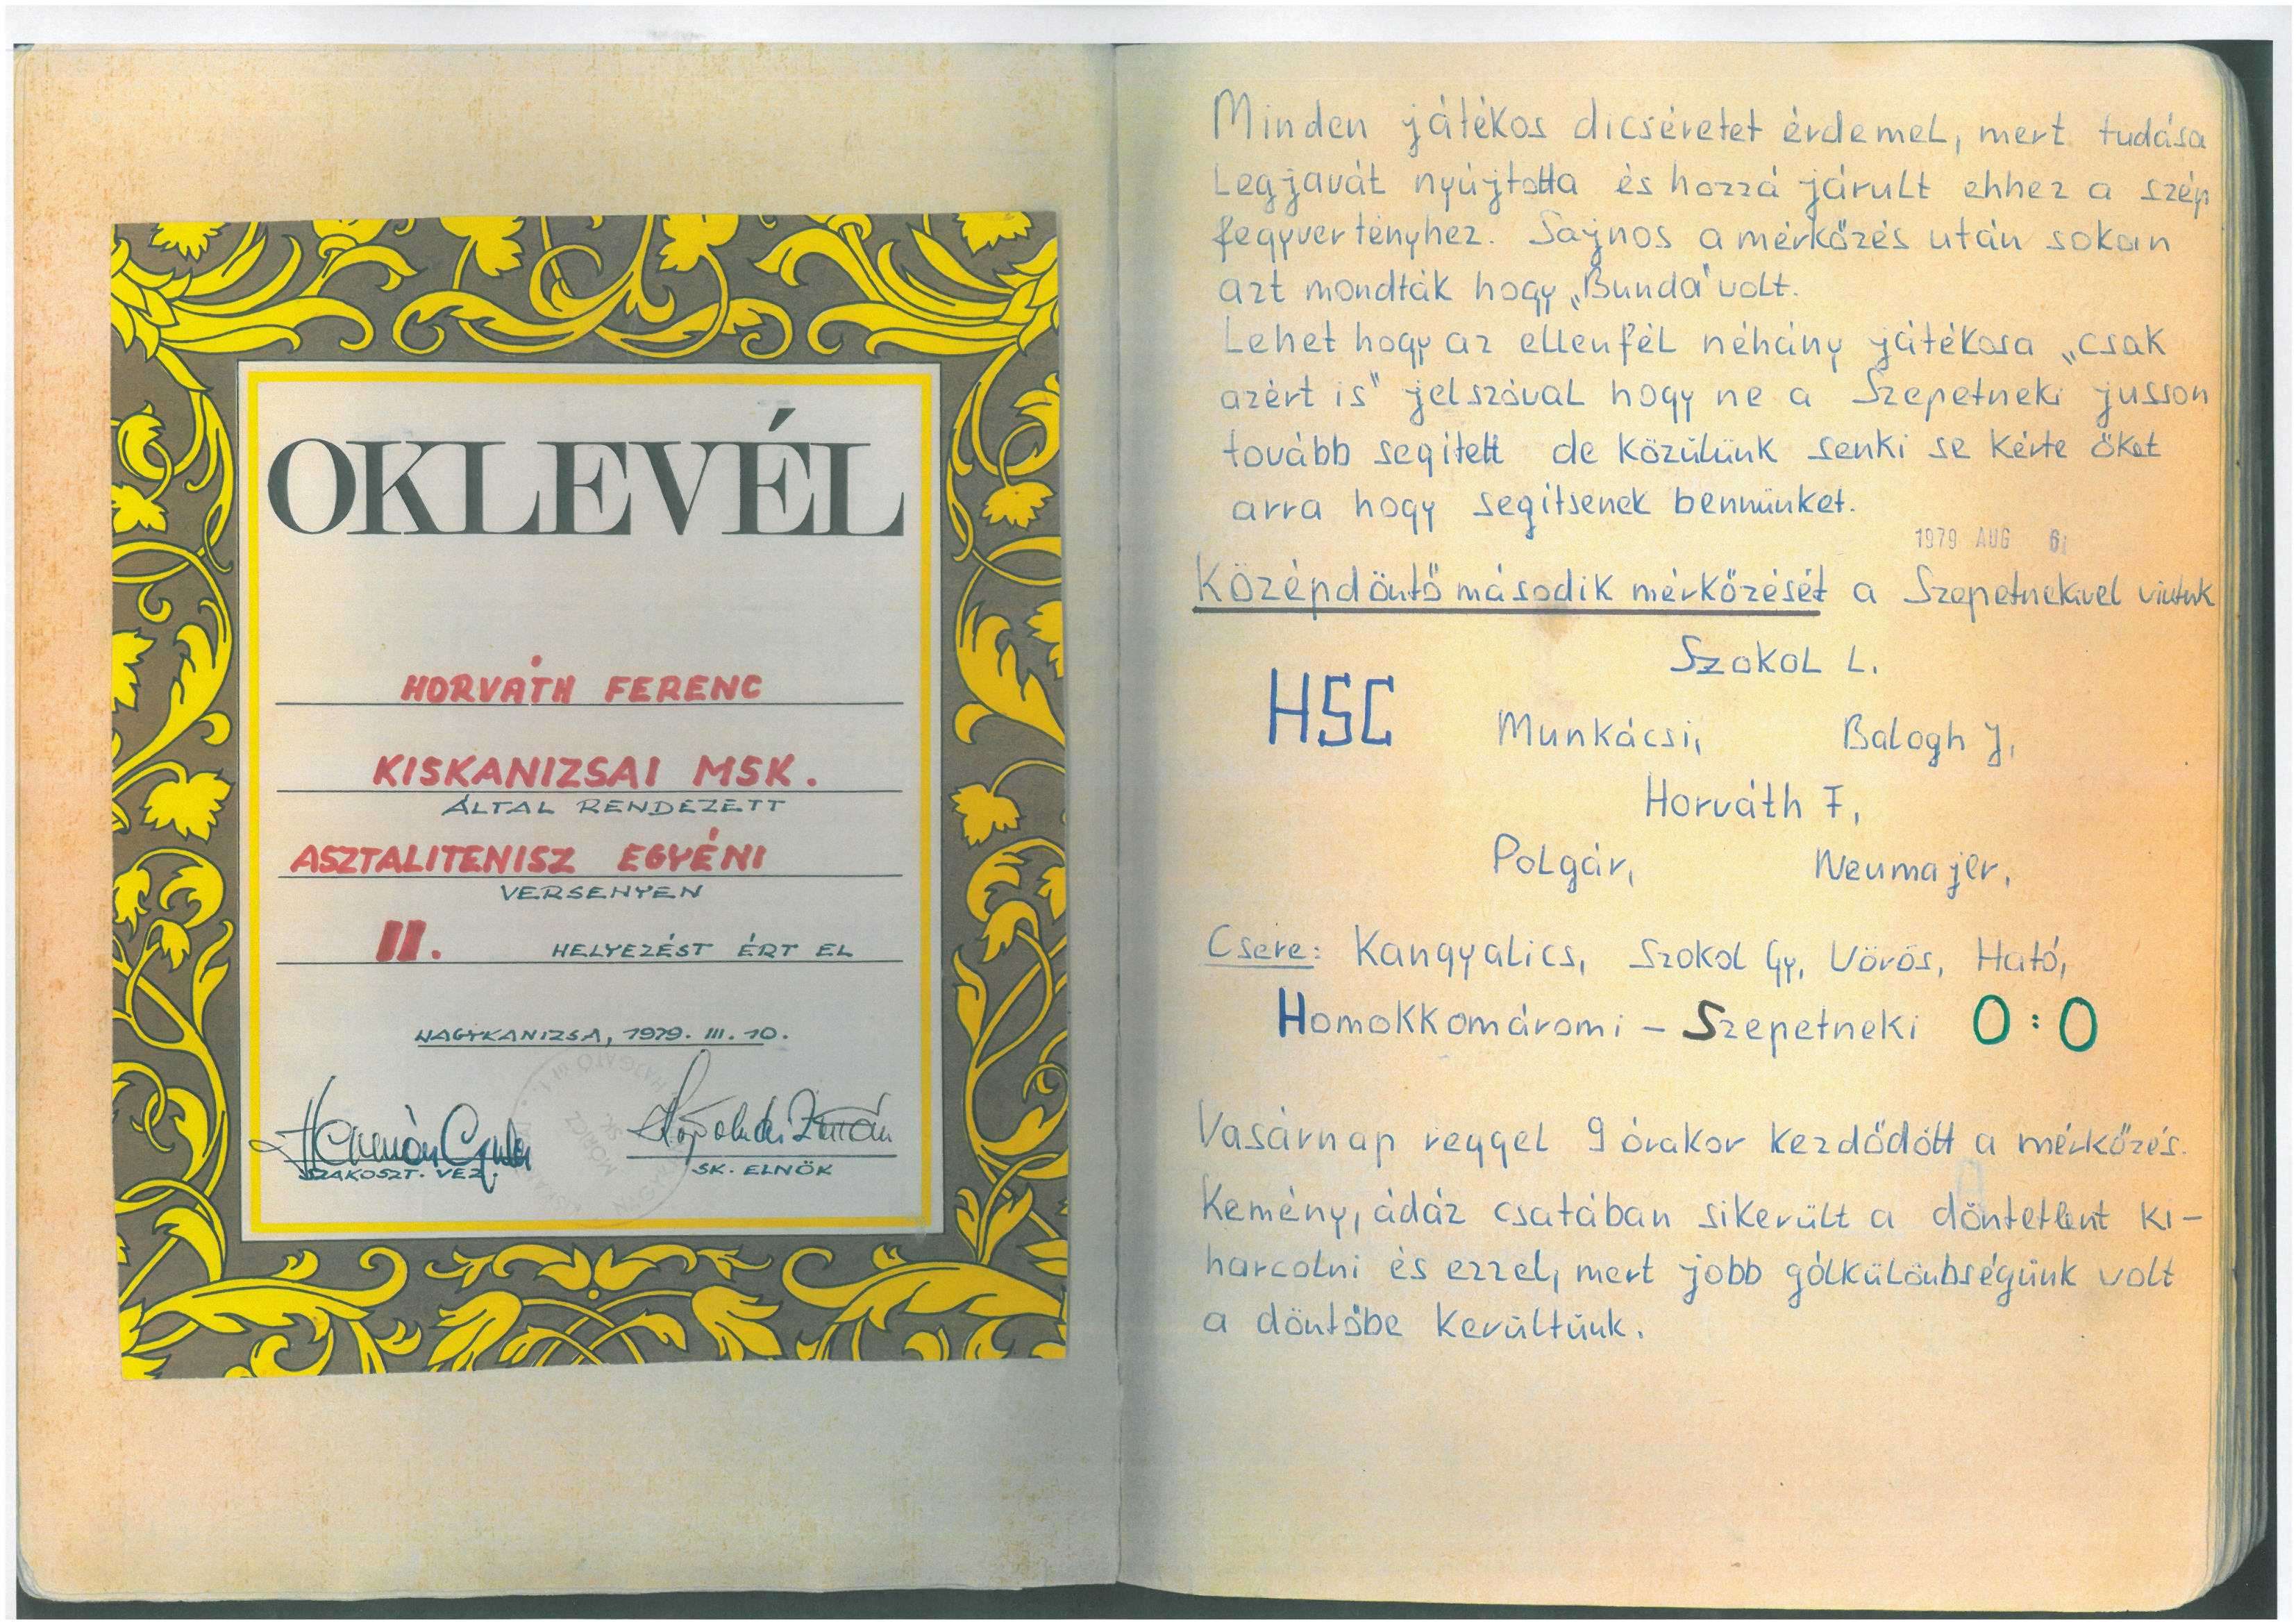 OKLEVÉL
HORVÁTH FERENC
KISKANIZSAI MSK.
ÁLTAL RENDEZETT
ASZTALITENISZ EGYÉNI
VERSENYEN
II. HELYEZÉST ÉRT EL
NAGYKANIZSA, 1979. III. 10.
SZAKOSZT. VEZ.
SK. ELNÖK
Minden játékos dicséretet érdemel, mert tudása
legjavát nyújtotta és hozzá járult ehhez a szép
fegyvertényhez. Sajnos a mérkőzés után sokan
azt mondták hogy „Bunda" volt.
Lehet hogy az ellenfél néhány játékosa „csak
azért is" jelszóval hogy ne a Szepetneki jusson
tovább segitett de közülünk senki se kérte őket
arra hogy segitsenek bennünket.
1979 AUG 6
Középdöntő második mérkőzését a Szepetnekivel vivtuk
Szokol L.
HSC Munkácsi, Balogh J,
Horváth F,
Polgár, Neumajer,
Csere: Kangyalics, Szokol Gy, Vörös, Ható,
Homokkomáromi – Szepetneki 0:0
Vasárnap reggel 9 órakor kezdődött a mérkőzés.
Kemény, ádáz csatában sikerült a döntetlent ki-
harcolni és ezzel, mert jobb gólkülönbségünk volt
a döntőbe kerültünk.